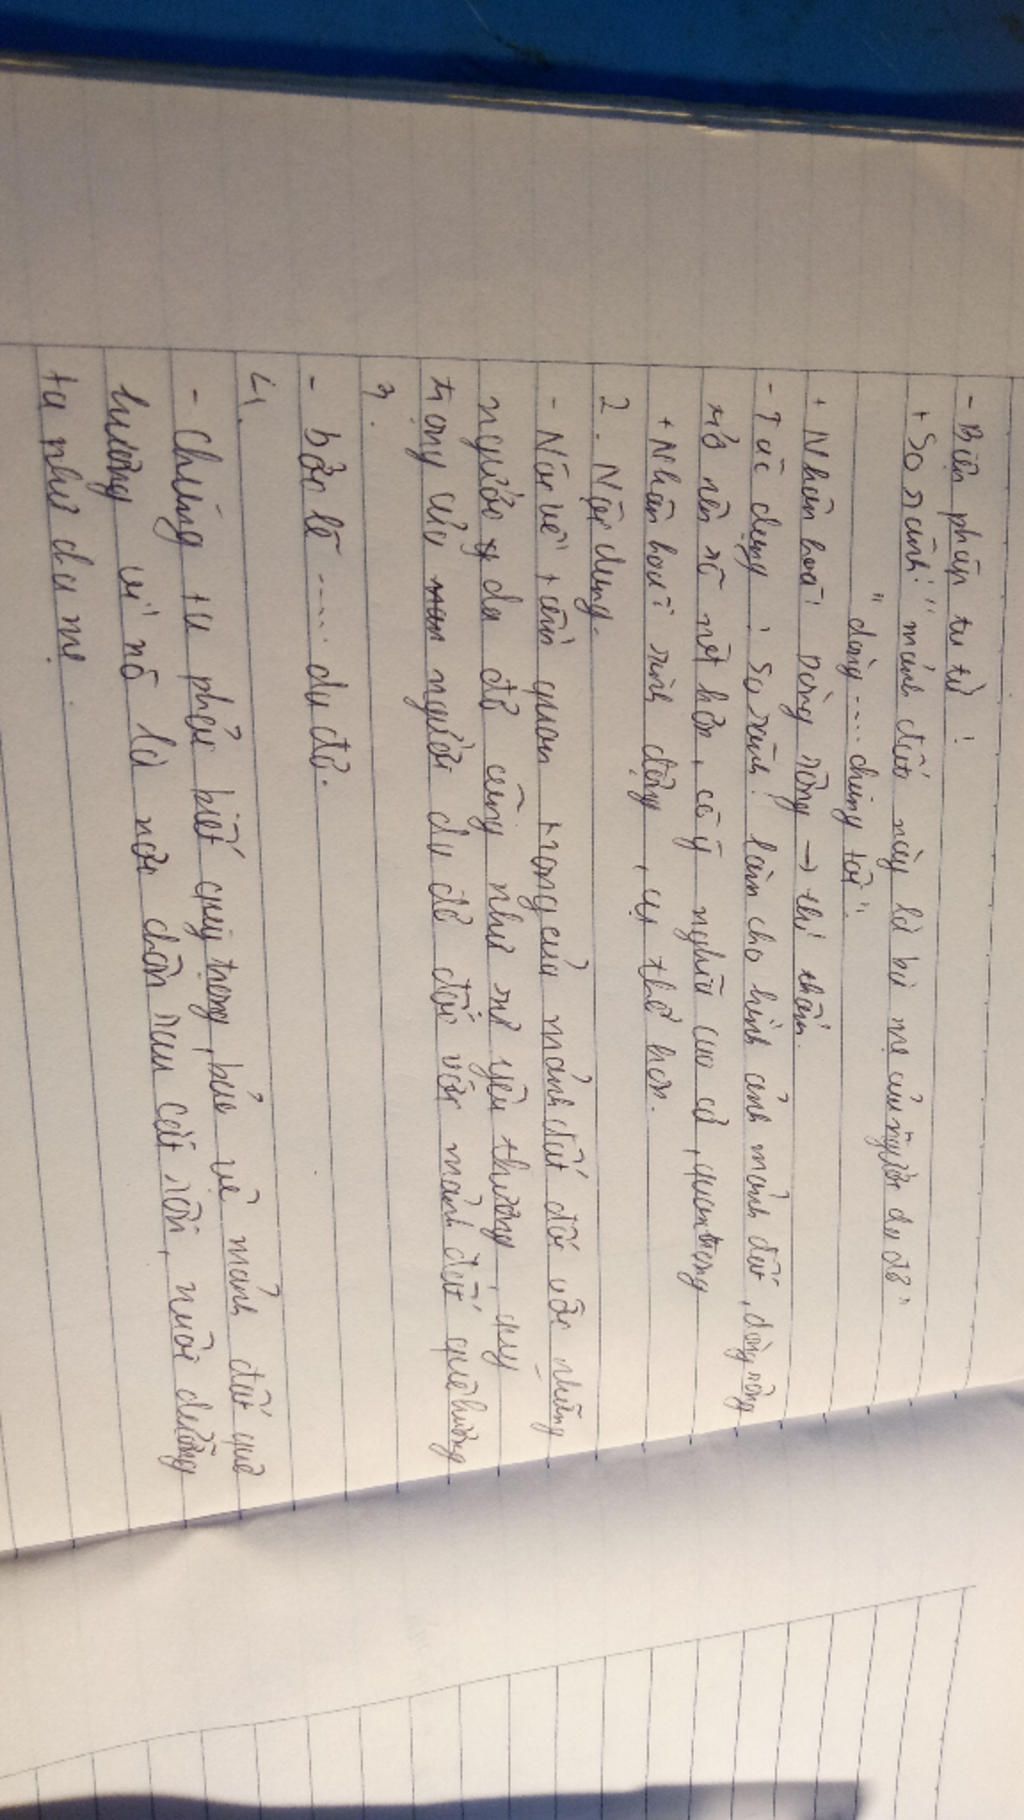 - Biện pháp tu từ :
+ So sánh: " mảnh đất này là bà mẹ của người da đỏ "
" dòng .... chúng tôi ".
+ Nhân hoá: Dòng sông → thì thầm.
- Tác dụng : So sánh: làm cho hình ảnh mảnh đất, dòng sông
trở nên rõ nét hơn, có ý nghĩa cao cả, quan trọng
+ Nhân hoá: sinh động, cụ thể hơn.
2. Nội dung.
- Nói về tầm quan trọng của mảnh đất đối với những
người da đỏ cũng như sự yêu thương, quý
trọng của người da đỏ đối với mảnh đất quê hương
3.
- bởi lẽ ..... da đỏ.
4.
- Chúng ta phải biết quý trọng, bảo vệ mảnh đất quê
hương vì nó là nơi chôn rau cắt rốn, nuôi dưỡng
ta như da mẹ.